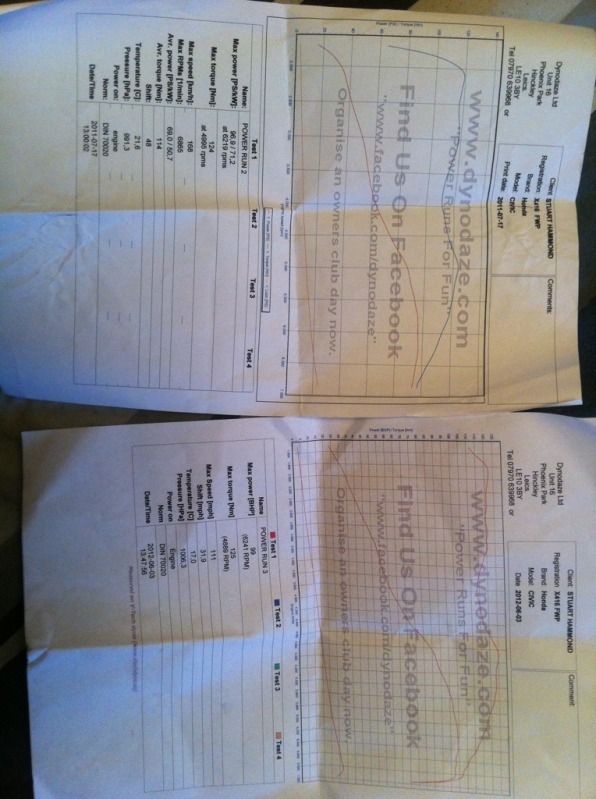 Dynodaze Ltd
Unit 16
Phoenix Park
Hinckley
Leics.
LE10 3BY
Tel 07970 639968 or
Client STUART HAMMOND
Registration X416 FWP
Brand: Honda
Model: CIVIC
Print date: 2011-07-17
Comments:
www.dynodaze.com
"Power Runs For Fun"
Find Us On Facebook
"www.facebook.com/dynodaze"
Organise an owners club day now.
Test 1 Test 2 Test 3 Test 4
Name: POWER RUN 2
Max power [PS/kW]: 96.9 / 71.2
at 6219 rpms
Max torque [Nm]: 124
at 4998 rpms
Max speed [km/h]: 168
Max RPMs [1/min]: 6865
Avr. power [PS/kW]: 69.0 / 50.7
Avr. torque [Nm]: 114
Shift: 48
Temperature [C]: 21,6
Pressure [hPa]: 991,3
Power on: engine
Norm: DIN 70020
Date/Time 2011-07-17
13:00:02
Dynodaze Ltd
Unit 16
Phoenix Park
Hinckley
Leics.
LE10 3BY
Tel 07970 639968 or
Client STUART HAMMOND
Registration X416 FWP
Brand Honda
Model CIVIC
Date 2012-06-03
Comment
www.dynodaze.com
"Power Runs For Fun"
Find Us On Facebook
"www.facebook.com/dynodaze"
Organise an owners club day now.
Test 1 Test 2 Test 3 Test 4
Name POWER RUN 3
Max power [BHP] 99
(6241 RPM)
Max torque [Nm] 125
(4889 RPM)
Max Speed [mph] 111
Shift [mph] 31.9
Temperature [C] 17.0
Pressure [hPa] 1006.3
Power on Engine
Norm DIN 70020
Date/Time 2012-06-03
13:47:56